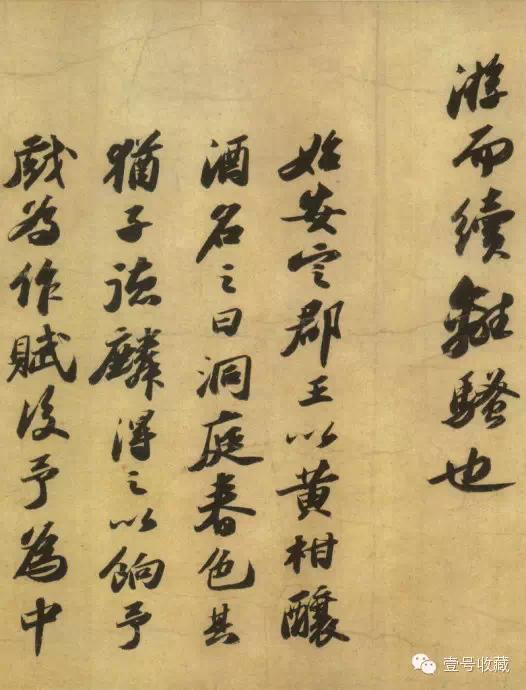 游而續離騷也
始安定郡王以黃柑釀
酒名之曰洞庭春色其
猶子德麟得之以餉予
戲為作賦後予為中
壹号收藏